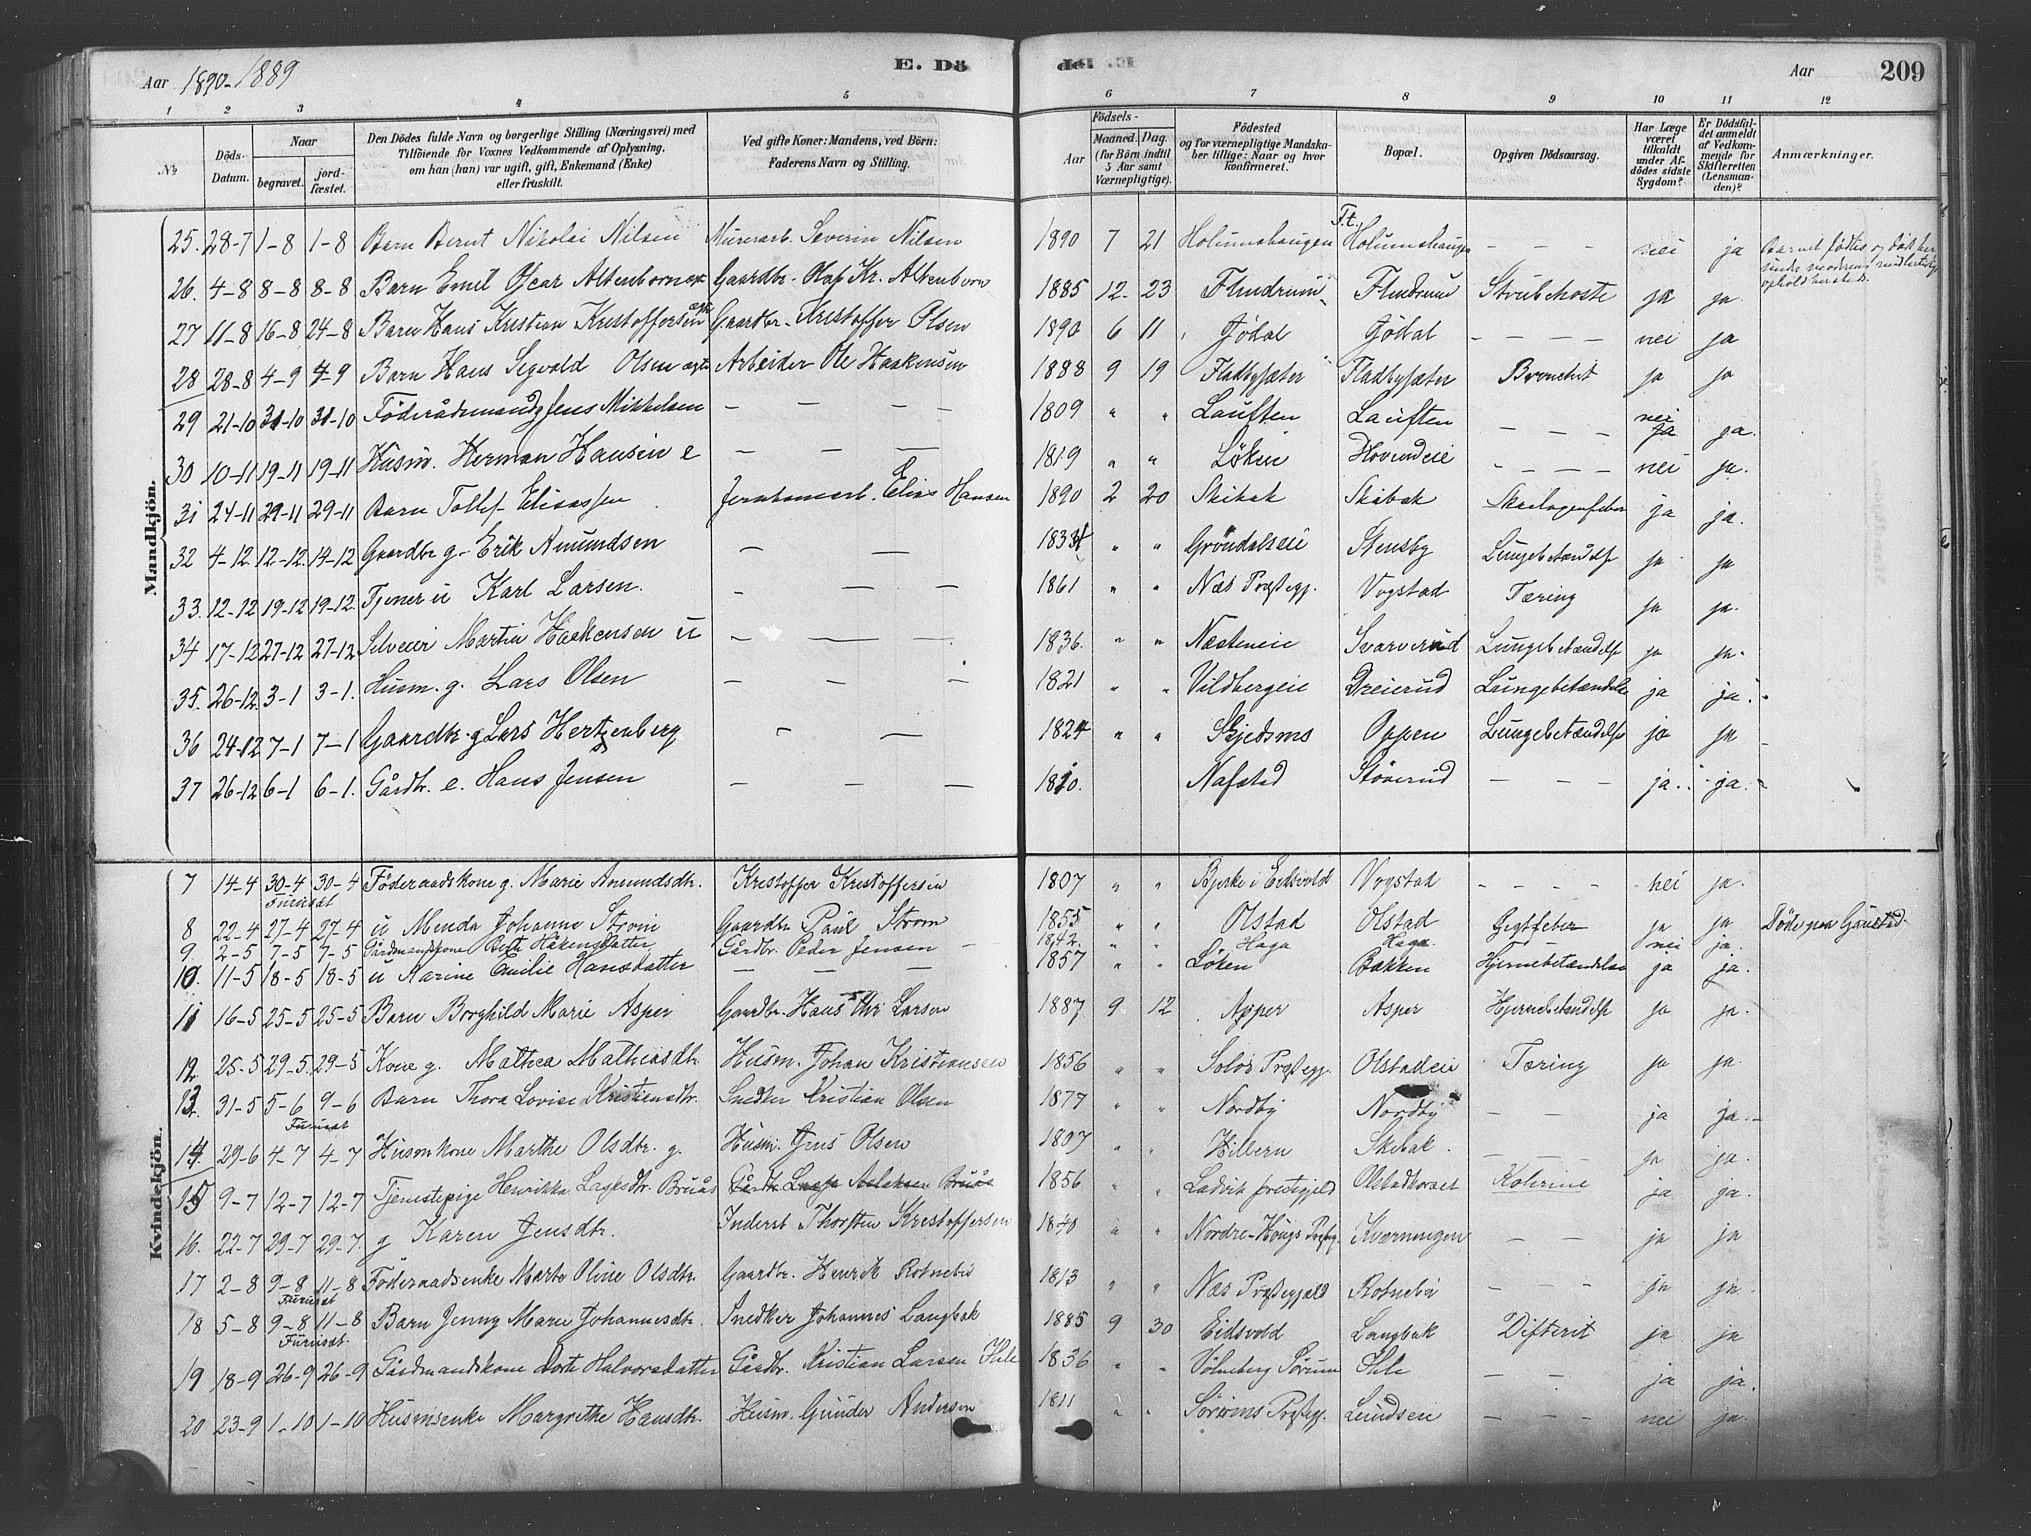 Aar 1890-1889 E. Dö
de. E. Aar 209
1 2 3 4 5 6 7 8 9 10 11 12
№ Döds-Datum. Naar begravet. jordfæstet. Den Dödes fulde Navn og borgerlige Stilling (Næringsvei) med Tilföiende for Voxnes Vedkommende af Oplysning, om han (hun) var ugift, gift, Enkemand (Enke) eller fraskilt. Ved gifte Koner: Mandens, ved Börn: Faderens Navn og Stilling. Födsels- Aar Maaned. Dag. (for Börn indtil 5 Aar samt Værnepligtige). Födested og for værnepligtige Mandskaber tillige: Naar og hvor konfirmeret. Bopæl. Opgiven Dödsaarsag. Har Læge været tilkaldt under Afdödes sidste Sygdom? Er Dödsfaldet anmeldt af Vedkommende for Skifteretten (Lensmanden)? Anmærkninger.
Mandkjön.
25. 28-7 1-8 1-8 Barn Bernt Nikolai Nilsen Murerarb. Severin Nilsen 1890 7 21 Holumshaugen F.t. Holumshaugen - - - nei ja Barnet födtes og döde her under moderens midlertidige ophold hersteds.
26. 4-8 8-8 8-8 Barn Emil Oscar Altenborn ægte Gaardbr. Olaf Kr. Altenborn 1885 12. 23 Flndrum Flndrum Strubehoste ja ja.
27 11-8 16-8 24-8 Barn Hans Kristian Kristoffersen ægte Gaardbr. Kristoffer Olsen 1890 6 11 Jödal Jödal - - - - nei ja
28 28-8 4-9 4-9 Barn Hans Sigvald Olsen ægte Arbeider Ole Haakensen 1888 9 19 Fladbysæter Fladbysæter Bronchit ja ja
29 21-10 31-10 31-10 Föderådsmand g Jens Mikkelsen - - - - 1809 " " Lauften Lauften - - - nei ja ja.
30 10-11 19-11 19-11 Husm. Herman Hansen e - - - 1819 " " Löken Hovindeie - - - - nei ja.
31 24-11 29-11 29-11 Barn Tollef Eliassen Jernbanearb. Elias Hansen 1890 2 20 Skibak Skibak Skarlagensfeber ja ja.
32 4-12. 12-12. 14-12 Gaardbr g. Erik Amundsen - - 1834 " " Gröndalseie Stensby Lungebetændelse ja ja
33. 12-12 19-12 19-12. Tjener u Karl Larsen. - - - 1861 " " Næs Præstegj. Vogstad Tæring ja ja.
34 17-12 27-12 27-12 Selveier Martin Haakensen u - - - 1836. " " Næsteneie Svarverud Lungebetændelse ja ja.
35. 26-12. 3-1 3-1. Husm. g. Lars Olsen - - - 1821 " " Vildbergeie Dreierud Lungebetændelse ja ja.
36 24-12 7-1 7-1 Gaardbr. g Lars Hertzenberg - - 1824 " " Skjedsmo Oppen Lungebetændelse ja ja
37 26-12 6-1 6-1. Gårdbr. e. Hans Jensen - - - 1810. Nafstad Stöverud - - - ja. ja.
Kvindekjön.
7 14-4 30-4 Furuset 30-4 Föderaadskone g. Marie Amundsdtr. Kristoffer Kristoffersen 1807 " " Bjerke i Eidsvold Vogstad - - - - nei ja.
8 22-4 27-4 27-4 u Menda Johanne Strøm Gaardbr. Paul Strøm 1855 " " Olstad Olstad Gigtfeber ja ja Döde paa Gaustad.
9 2-5 7-5 7-5 Gårdmandskone Berte Håkensdatter Gårdbr. Peder Jensen - 1842. " " Haga Haga nei ja.
10. 11-5 18-5 18-5 u Karine Emilie Hansdatter - - - 1857 " " Löken Bakken Hjernebetændelse ja ja.
11 16-5 25-5 25-5 Barn Borghild Marie Asper Gaardbr. Hans Chr Larsen 1887 9 12 Asper Asper Hjernebetændelse ja ja.
12. 25-5 29-5. 29-5 Kone g. Mathea Mathiasdtr. Husm. Johan Kristiansen 1856 " " Solør Præstegj. Olstadeie Tæring ja ja.
13. 31-5 5-6 Furuset 9-6 Barn Thora Lovise Kristiansdtr. Snedker Kristian Olsen 1877 " " Nordby Nordby - - ja ja.
14 29-6 4-7 4-7 Husmkone Marthe Olsdtr. g. Husm. Jens Olsen 1807 " " Hilbern Skibak. - - ja ja.
15 9-7 12-7 12-7 Tjenestepige Henrikke Lassesdtr. Bruås Gårdbr. Lasse Aslaksen Bruås 1856 " " Ladvik præstegjeld Olstadkorset Kolerine ja ja.
16. 22-7 29-7 29-7. g Karen Jensdtr. Inderst Thorsten Kristoffersen 1840 " " Nordre-Höugs Præstegj. Kværningen - - ja ja
17 2-8 9-8 Furuset 11-8 Föderaadsenke Marte Oline Olsdtr. Gaardbr. Henrik Rotnebö 1813 " " Næs Præstegjæld Rotnebö - - ja ja.
18 5-8 9-8 Furuset 11-8 Barn Jenny Marie Johannesdtr. Snedker Johannes Langbak 1885 9 30 Eidsvold Langbak Difterit ja ja
19 18-9 26-9 26-9 Gårdmandskone Dorte Halvorsdatter Gårdbr. Kristian Larsen Ihle 1836 " " Sörum Ihle - - ja ja.
20 23-9 1-10 1-10 Husmsenke Margrethe Hansdtr. Husm. Gunder Andersen 1811 " " Sörums Præstegj. Lundseie - - - nei ja.